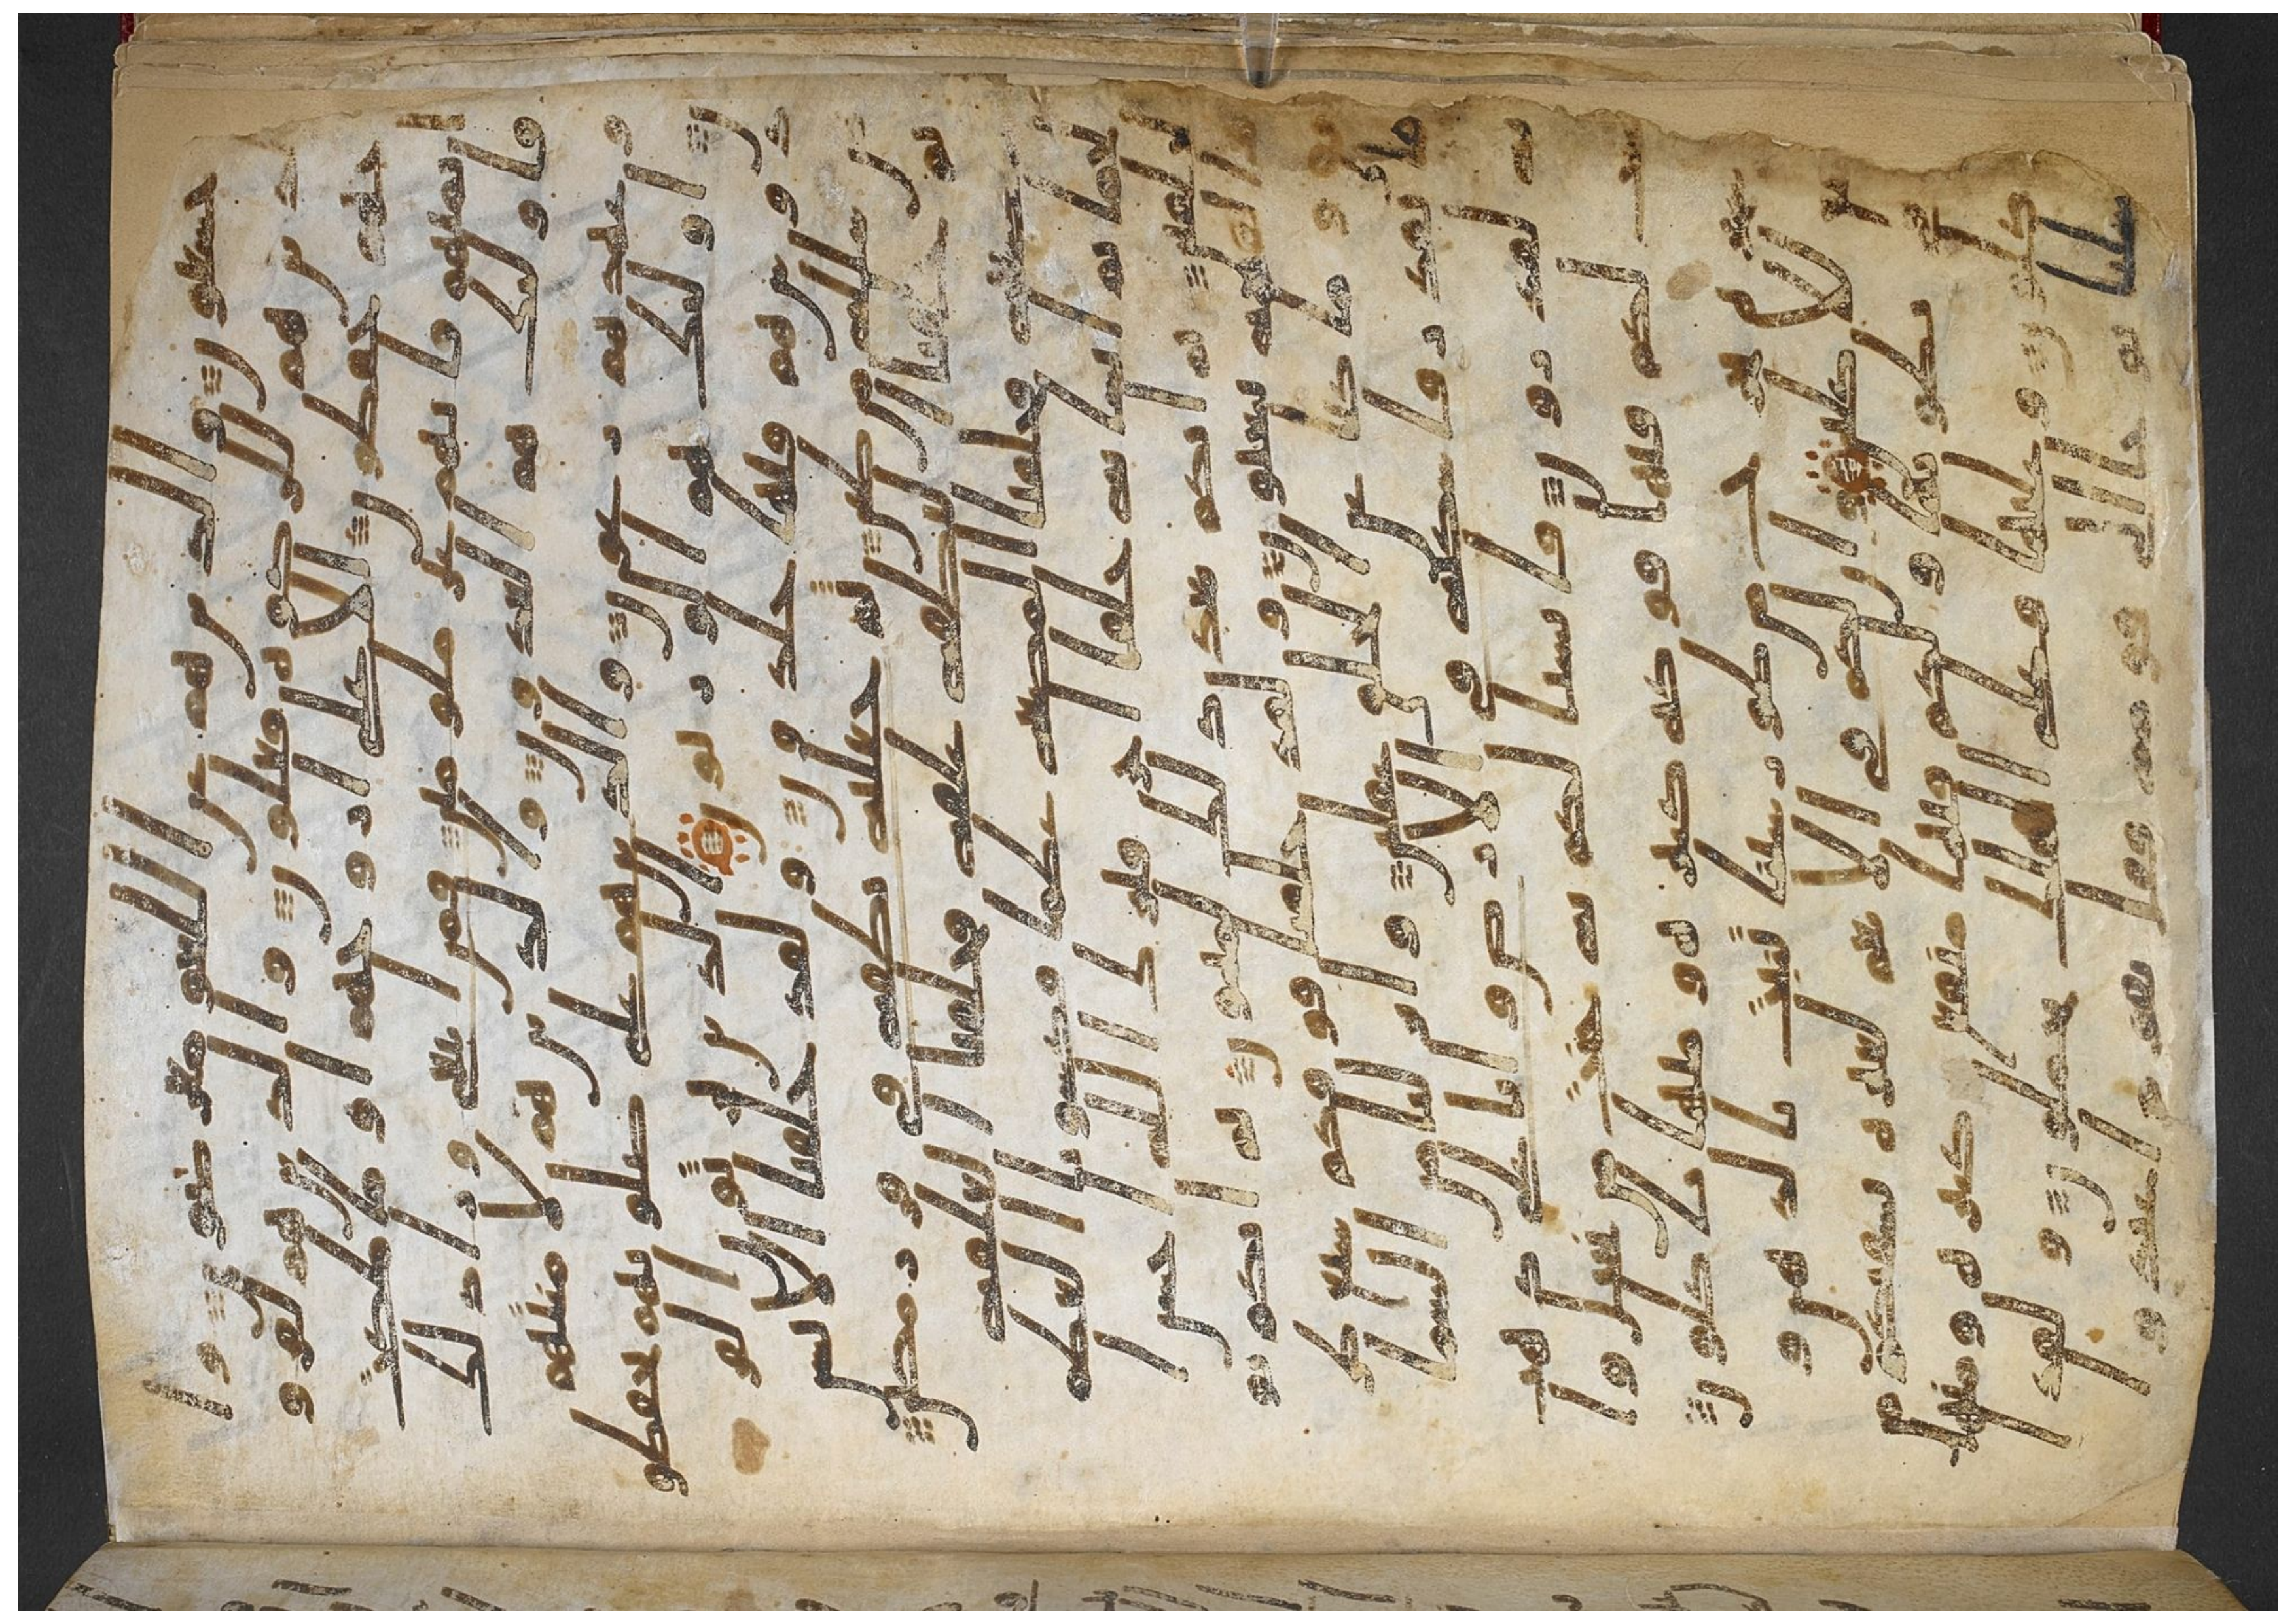 خشعون والذين هم عن اللغو معرضون وا
لذين هم للزكوه فعلون والذين هم لفرو
جهم حفظون الا على ازوجهم او ما ملكت
ايمنهم فانهم غير ملومين فمن ابتغى ورا ذلك
فاولئك هم العدون والذين هم لا منتهم
وعهدهم رعون والذين هم على صلوتهم يحفظو
ن اولئك هم الورثون الذين يرثون الفر
دوس هم فيها خلدون ولقد خلقنا الانس
ن من سلله من طين ثم جعلنه نطفه في قرر مكين
ثم خلقنا النطفه علقه فخلقنا العلقه
مضغه فخلقنا المضغه عظما فكسونا العظم
لحما ثم انشانه خلقا اخر فتبرك الله احسن ا
لخلقين ثم انكم بعد ذلك لميتون ثم انكم يو
م القيمه تبعثون ولقد خلقنا فوقكم سبع
طرئق وما كنا عن الخلق غفلين وانزلنا من السما
ما بقدر فاسكنه في الارض وانا على ذهب
به لقدرون فانشانا لكم به جنت من نخيل وا
عنب لكم فيها فوكه كثيره ومنها تاكلون
وشجره تخرج من طور سينا تنبت بالدهن و
صبغ للاكلين وان لكم في الانعم لعبره نسقيكم
مما في بطونها ولكم فيها منفع كثيره ومنها
تاكلون وعليها وعلى الفلك تحملون ولقد ا
رسلنا نوحا الى قومه فقال يقوم اعبدو